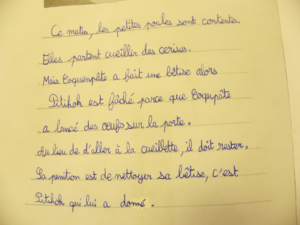 Ce matin, les petites poules sont contentes.
Elles partent cueillir des cerises.
Mais Coquenpâte a fait une bêtise alors
Pitikok est fâché parce que Coqupâte
a lancé des œufs sur la porte.
Au lieu de d'aller à la cueillette, il doit rester.
Sa punition est de nettoyer sa bêtise, c'est
Pitikok qui lui a donné.